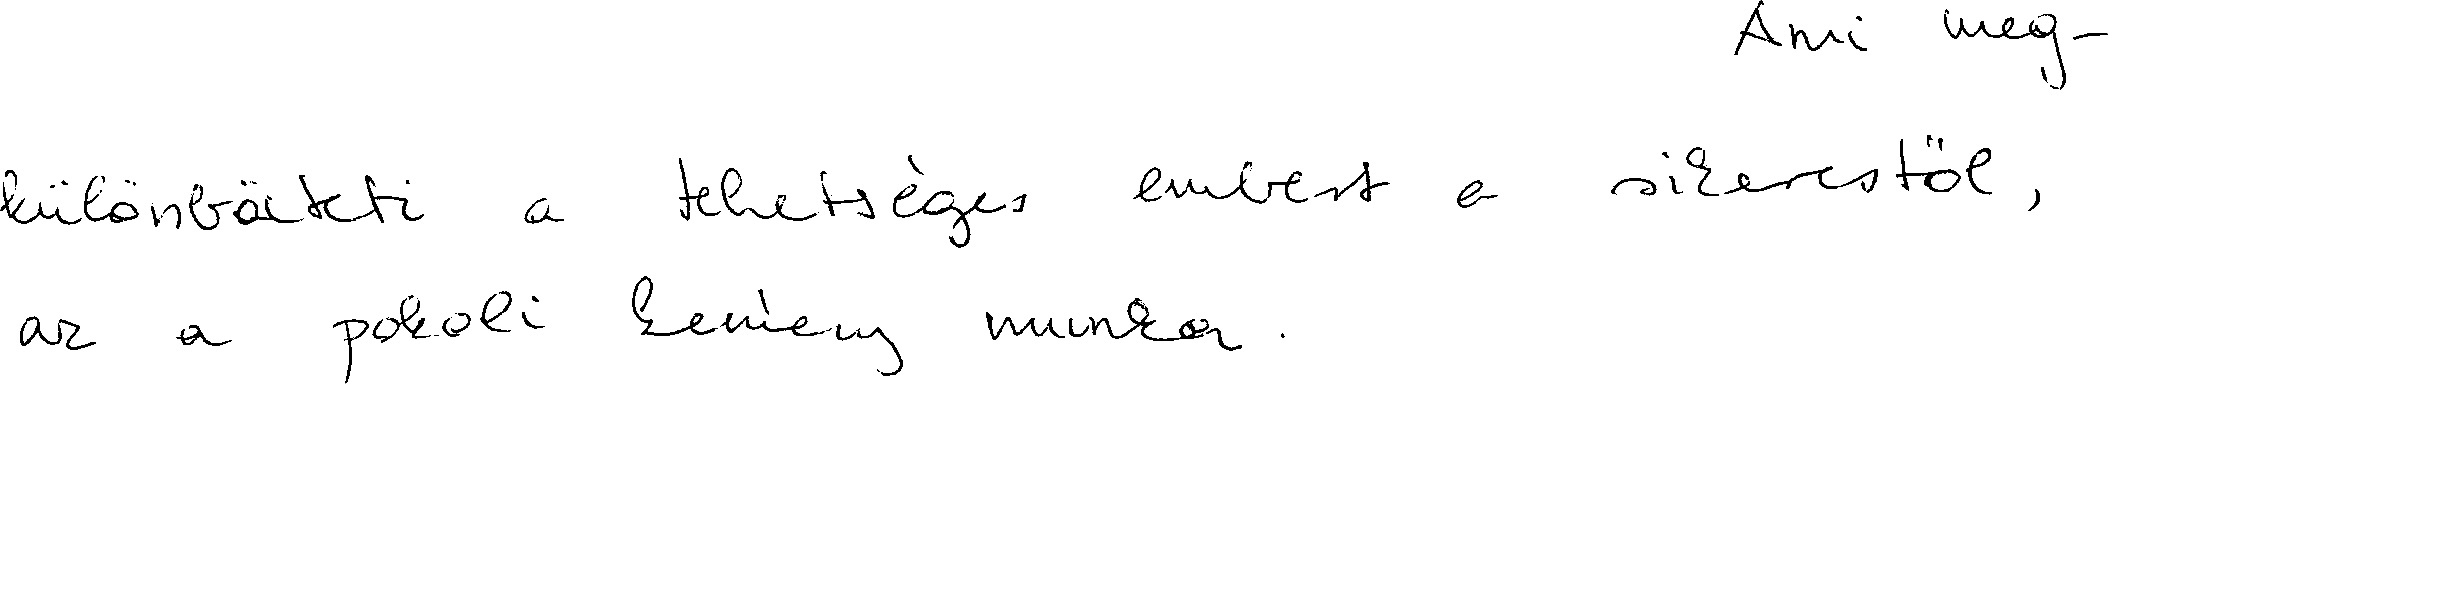 Ami meg-
különbözteti a tehetséges embert a sikerestől,
az a pokoli kemény munka.